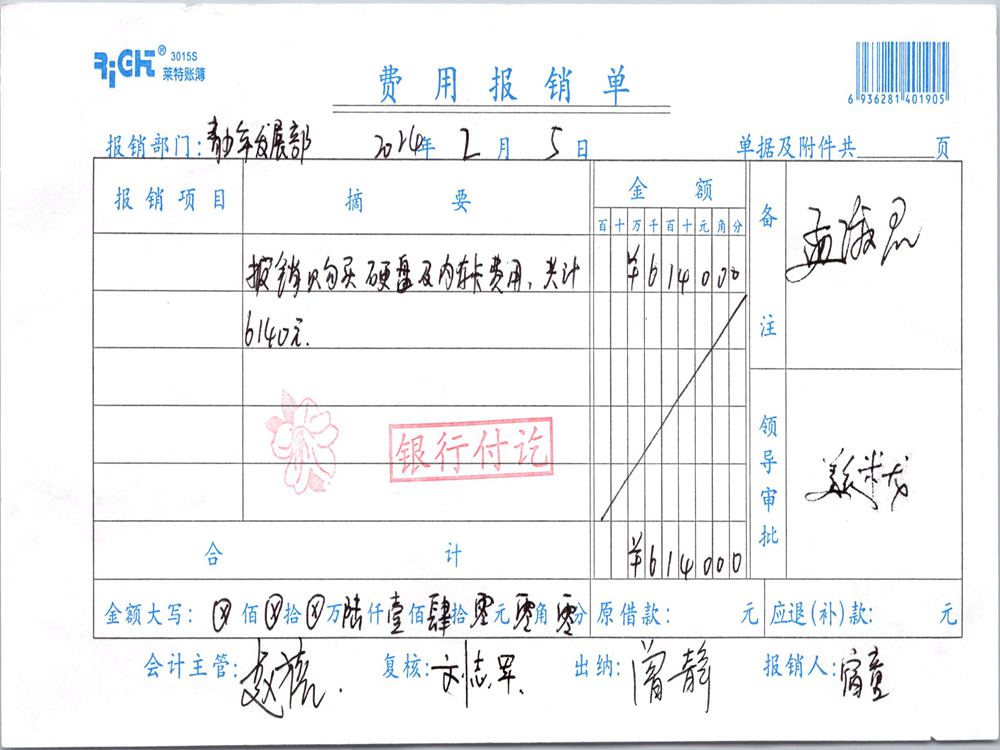 RiGHT® 3015S
莱特账簿
费用报销单
6 936281 401905
报销部门:青少年发展部 2024年 2月 5日 单据及附件共 页
报销项目 摘要 金额 备注
百十万千百十元角分
报销购买硬盘及内存卡费用,共计 ¥614000
6140元.
银行付讫
领导审批
合计 ¥614000
金额大写: ⊗佰⊗拾⊗万陆仟壹佰肆拾零元零角零分 原借款: 元 应退(补)款: 元
会计主管: 复核:刘志军 出纳:曾静 报销人:宿童